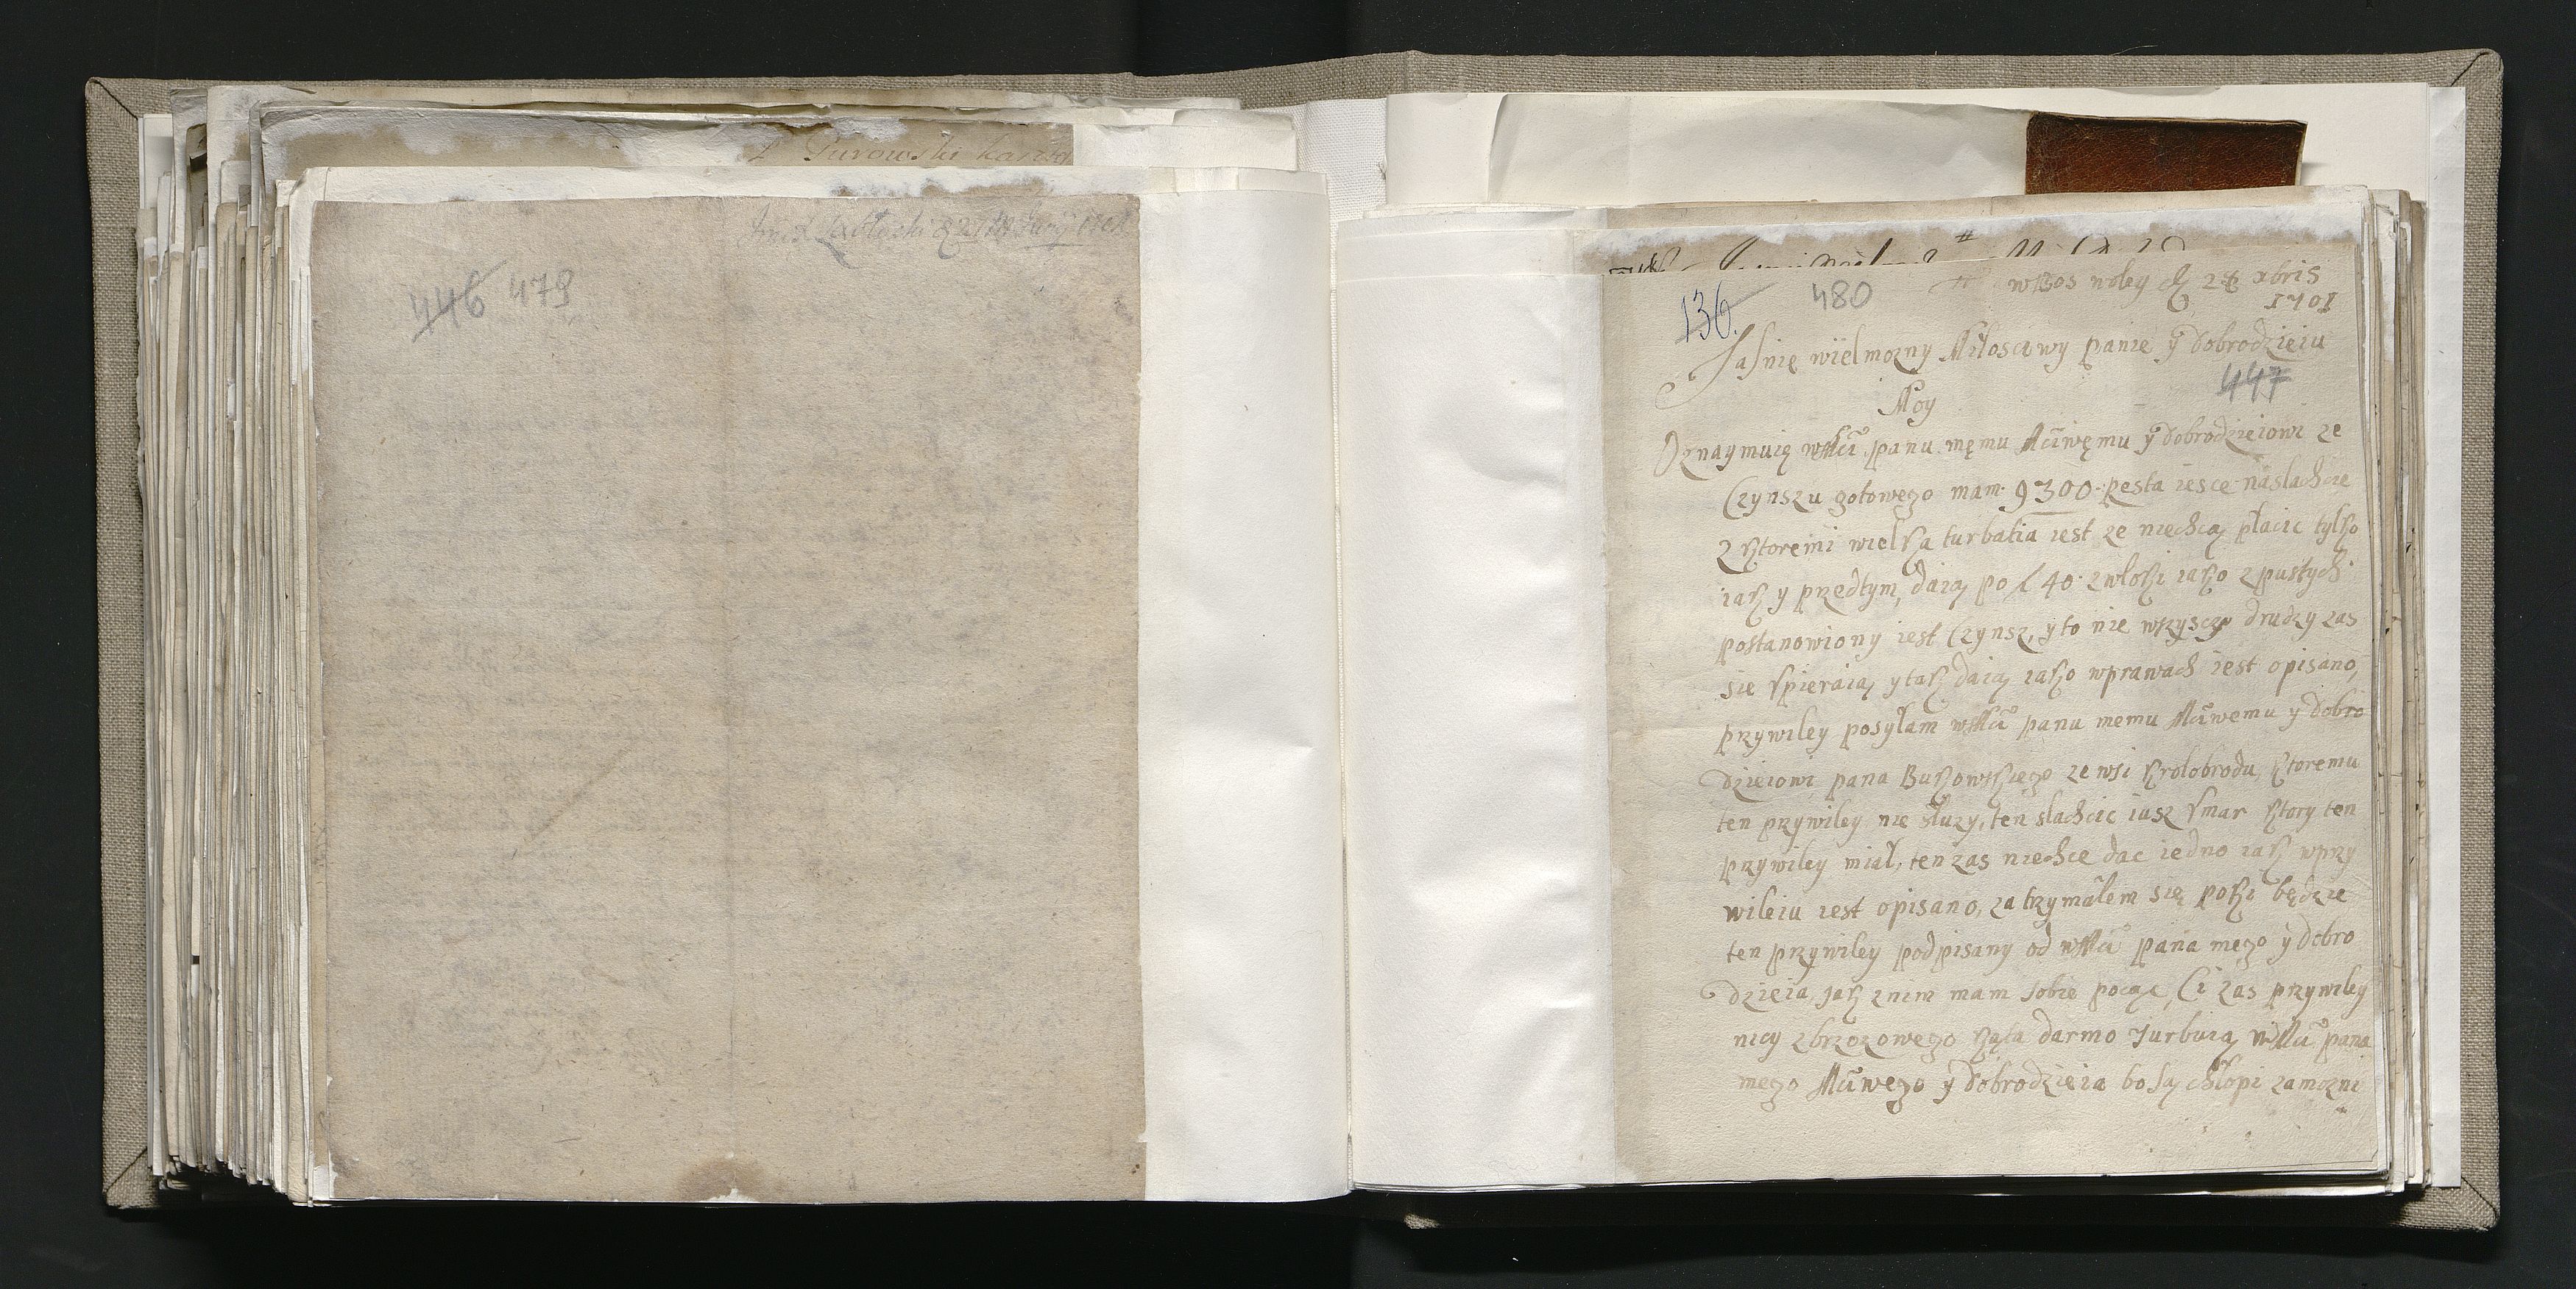 Turowski
446 479
136. 480
wBos woley d 28 xbris
1701
Jasnie wielmozny Miłosciwy panie y Dobrodzieiu
447
Moy
Oznaymuię wMci panu męmu Mciwęmu y Dobrodzieiowi ze
Czynszu gotowego mam 9300 resta iesce náslachcie
z ktoremi wielka turbatia iest ze niechcą płacic tylko
iak y przedtym, daią po f 40 zwłoki iako z pustych
postanowiony iest Czynsz, y to nie wszyscy drudzy zas
sie spieraią y tak daią iako wprawach iest opisano,
przywiley posyłam wMci panu memu Mciwemu y dobro
dzieiowi pana Bukowskiego ze wsi krolobrodu, ktoremu
ten przywiley nie służy, ten slachcic iusz vmar ktory ten
przywiley miał, ten zas niechce dac iedno iak wprzy
wileiu iest opisano, zatrzymałem się poki będzie
ten przywiley podpisany od wMci pana mego y dobro
dzieia, jak znim mam sobie począc, Ci zas przywiley
nicy zbrzozowego kąta darmo turbuią wMci pana
mego Mciwego y Dobrodzieia bo są chłopi zamozni